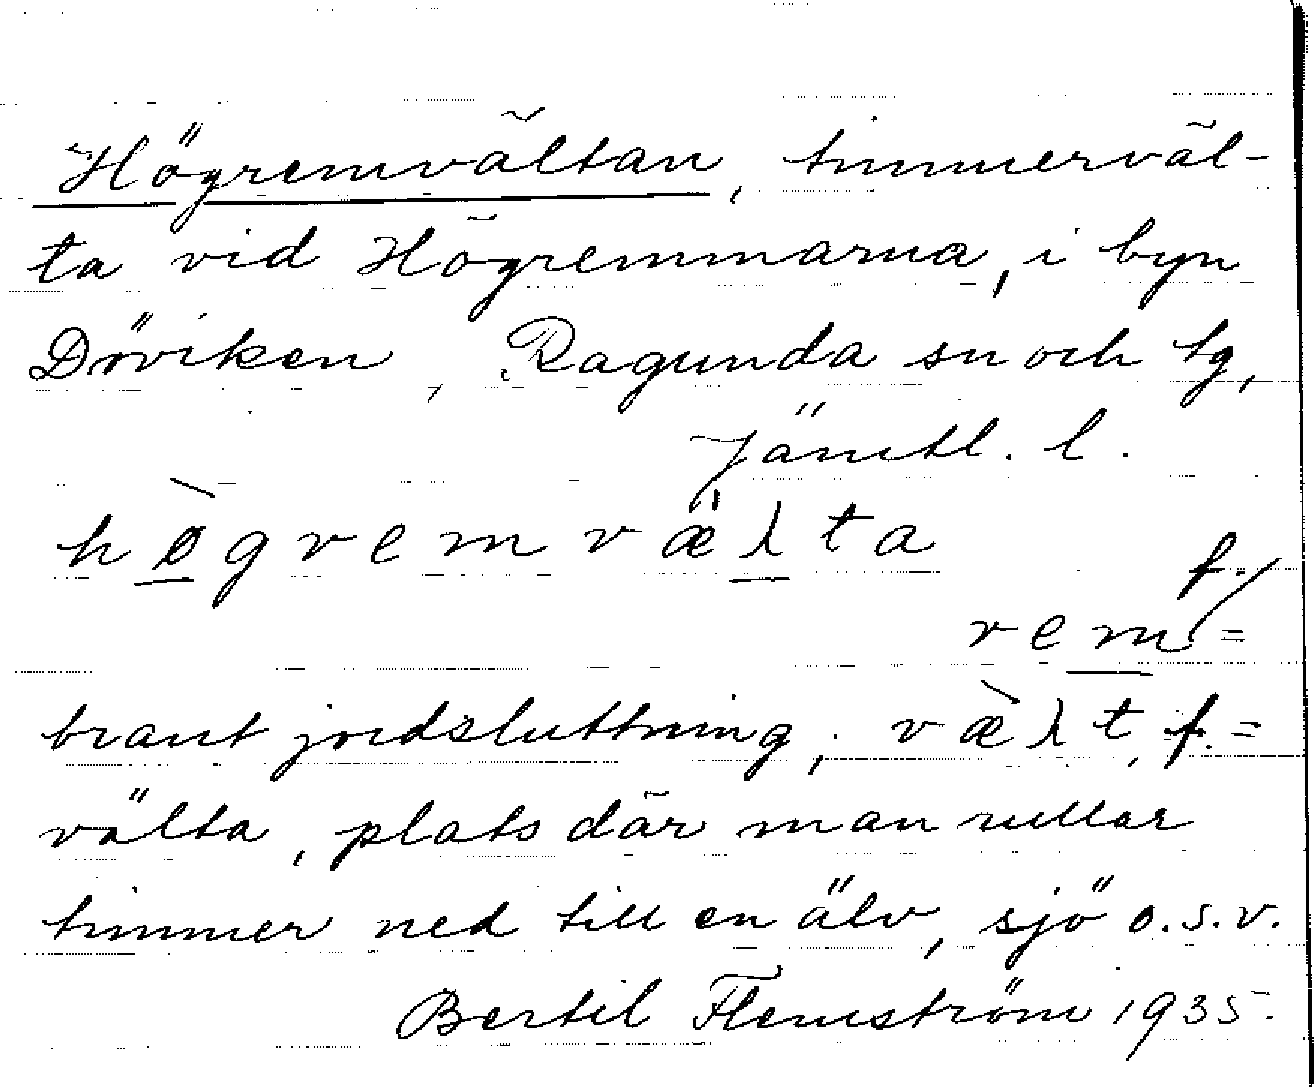 Högremvältan, timmerväl-
ta vid Högremmarna, i byn
Döviken, Ragunda sn och tg,
Jämtl. l.
hø̀gremvæλta
rem f. =
brant jordsluttning; væ̀λt, f. =
välta, plats där man rullar
timmer ned till en älv, sjö o.s.v.
Bertil Flemström 1935.